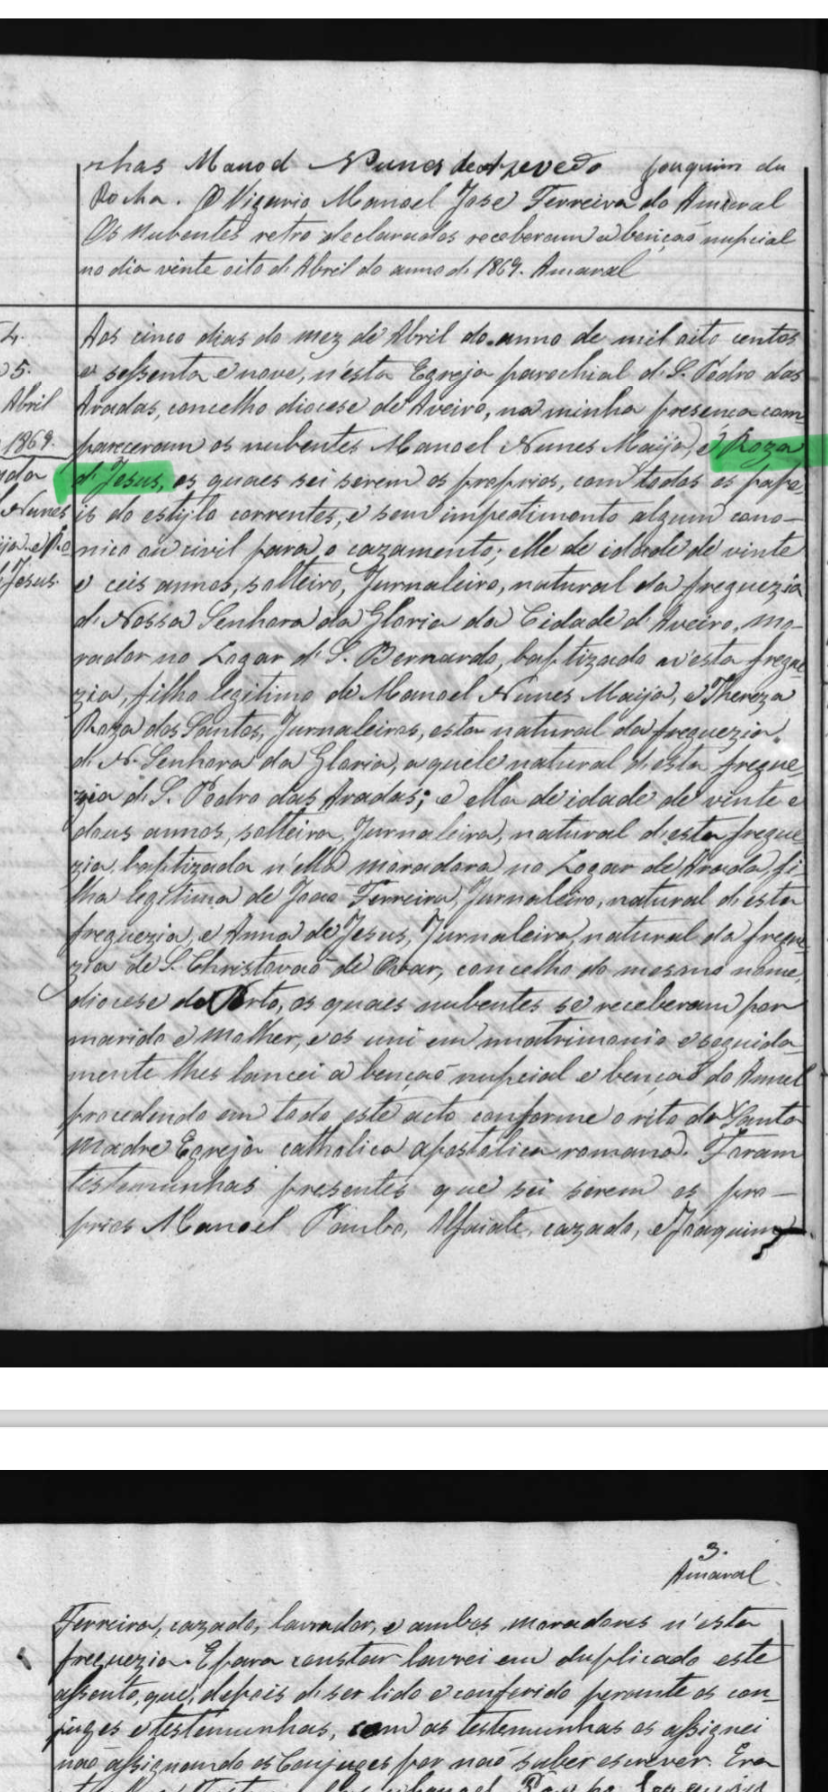 nhas Manoel Nunes de Azevedo Joaquim da
Rocha. O Vigario Manoel José Ferreira do Amaral
Os nubentes retro declarados receberam a benção nupcial
no dia vinte oito d'Abril do anno d' 1869. Amaral
Aos cinco dias do mez de Abril do anno de mil oito centos
e sessenta e nove, n'esta Egreja parochial d' S. Pedro das
Aradas, concelho diocese de Aveiro, na minha presença com
Abril
pareceram os nubentes Manoel Nunes Maijo e Roza
1869.
d' Jesus, os quaes sei serem os proprios, com todos os pape
Nunes
is do estylo correntes, e sem impedimento algum cano-
nico ou civil para o cazamento; elle de idade de vinte
Jesus.
e ceis annos, solteiro, Jurnaleiro, natural da freguezia
d' Nossa Senhora da Gloria da Cidade d' Aveiro, mo-
rador no Logar d' S. Bernardo, baptizado n'esta fregue
zia, filho legitimo de Manoel Nunes Maijo, e Thereza
Roza dos Santos, Jurnaleiros, esta natural da freguezia
d' N. Senhora da Gloria, a quele natural d'esta fregue
zia d' S. Pedro das Aradas; e ella de idade de vinte e
dous annos, solteira, Jurnaleira, natural d'esta fregue
zia, baptizada n'ella moradora no Logar de Arada, fi
lha legitima de João Ferreira, Jurnaleiro, natural d'esta
freguezia, e Anna de Jesus, Jurnaleira, natural da fregue
zia de S. Christovão de Ovar, concelho do mesmo nome,
diocese do Porto, os quaes nubentes se receberam por
marido e mulher, e os uni em matrimonio e seguida-
mente lhes lancei a benção nupcial e benção do Annel
procedendo em todo este acto conforme o rito da Santa
Madre Egreja catholica apostolica romana. Foram
testemunhas presentes que sei serem os pro-
prios Manoel Pombo, Alfaiate, cazado, e Joaquim
3.
Amaral
Ferreira, cazado, lavrador, e ambos moradores n'esta
freguezia. E para constar lavrei em duplicado este
assento, que, depois d' ser lido e conferido perante os con-
juges e testemunhas, com as testemunhas os assignei
não assignando os Conjuges por não saber escrever. Era